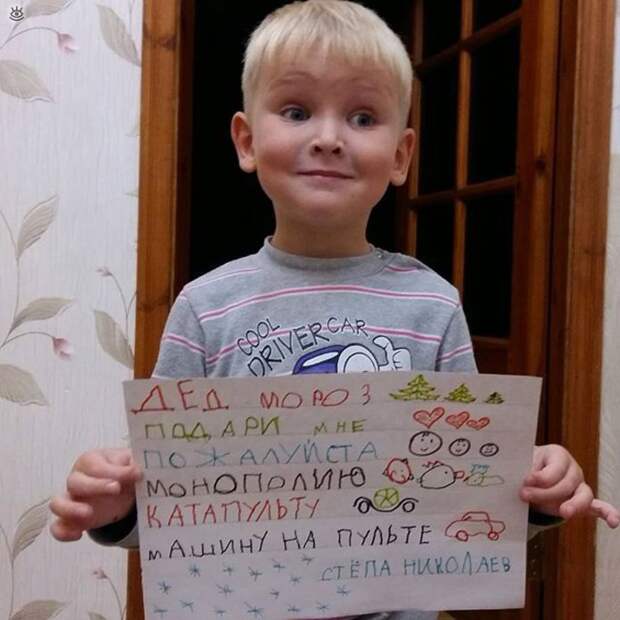 COOL
DRIVER CAR
ДЕД МОРОЗ
ПОДАРИ МНЕ
ПОЖАЛУЙСТА
МОНОПОЛИЮ
КАТАПУЛЬТУ
МАШИНУ НА ПУЛЬТЕ
СТЁПА НИКОЛАЕВ